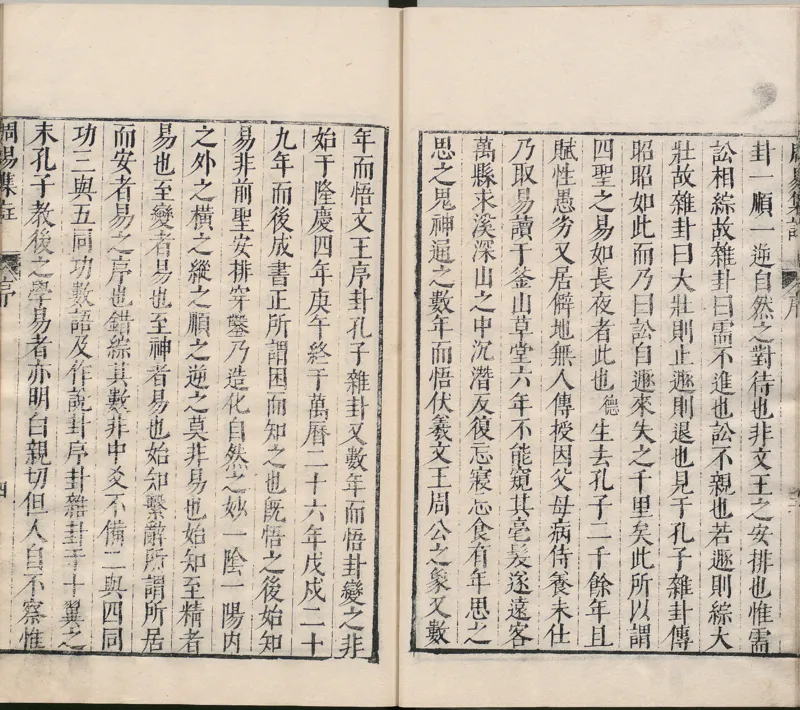 卦一順一逆自然之對待也非文王之安排也惟需
訟相綜故雜卦曰需不進也訟不親也若遯則綜大
壯故雜卦曰大壯則止遯則退也見于孔子雜卦傳
昭昭如此而乃曰訟自遯來失之千里矣此所以謂
四聖之易如長夜者此也德生去孔子二千餘年且
賦性愚劣又居僻地無人傳授因父母病侍養未仕
乃取易讀于釜山草堂六年不能窺其毫髮遂遠客
萬縣求溪深山之中沉潛反復忘寢忘食有年思之
思之鬼神通之數年而悟伏羲文王周公之象又數
年而悟文王序卦孔子雜卦又數年而悟卦變之非
始于隆慶四年庚午終于萬曆二十六年戊戌二十
九年而後成書正所謂困而知之也旣悟之後始知
易非前聖安排穿鑿乃造化自然之妙一陰一陽内
之外之橫之縱之順之逆之莫非易也始知至精者
易也至變者易也至神者易也始知繫辭所謂所居
而安者易之序也錯綜其數非中爻不備二與四同
功三與五同功數語及作說卦序卦雜卦于十翼之
末孔子教後之學易者亦明白親切但人自不察惟
周易集註
序
四